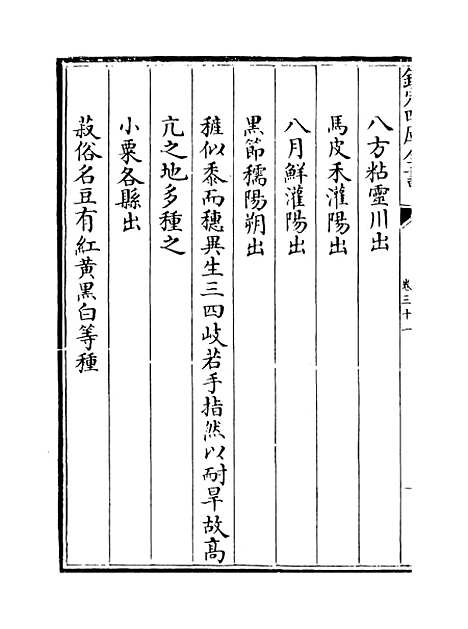 欽定四庫全書
卷三十一
八方粘靈川出
馬皮禾灌陽出
八月鮮灌陽出
黑節穤陽朔出
稚似黍而穗異生三四歧若手指然以耐旱故髙
亢之地多種之
小粟各縣出
菽俗名豆有紅黄黑白等種